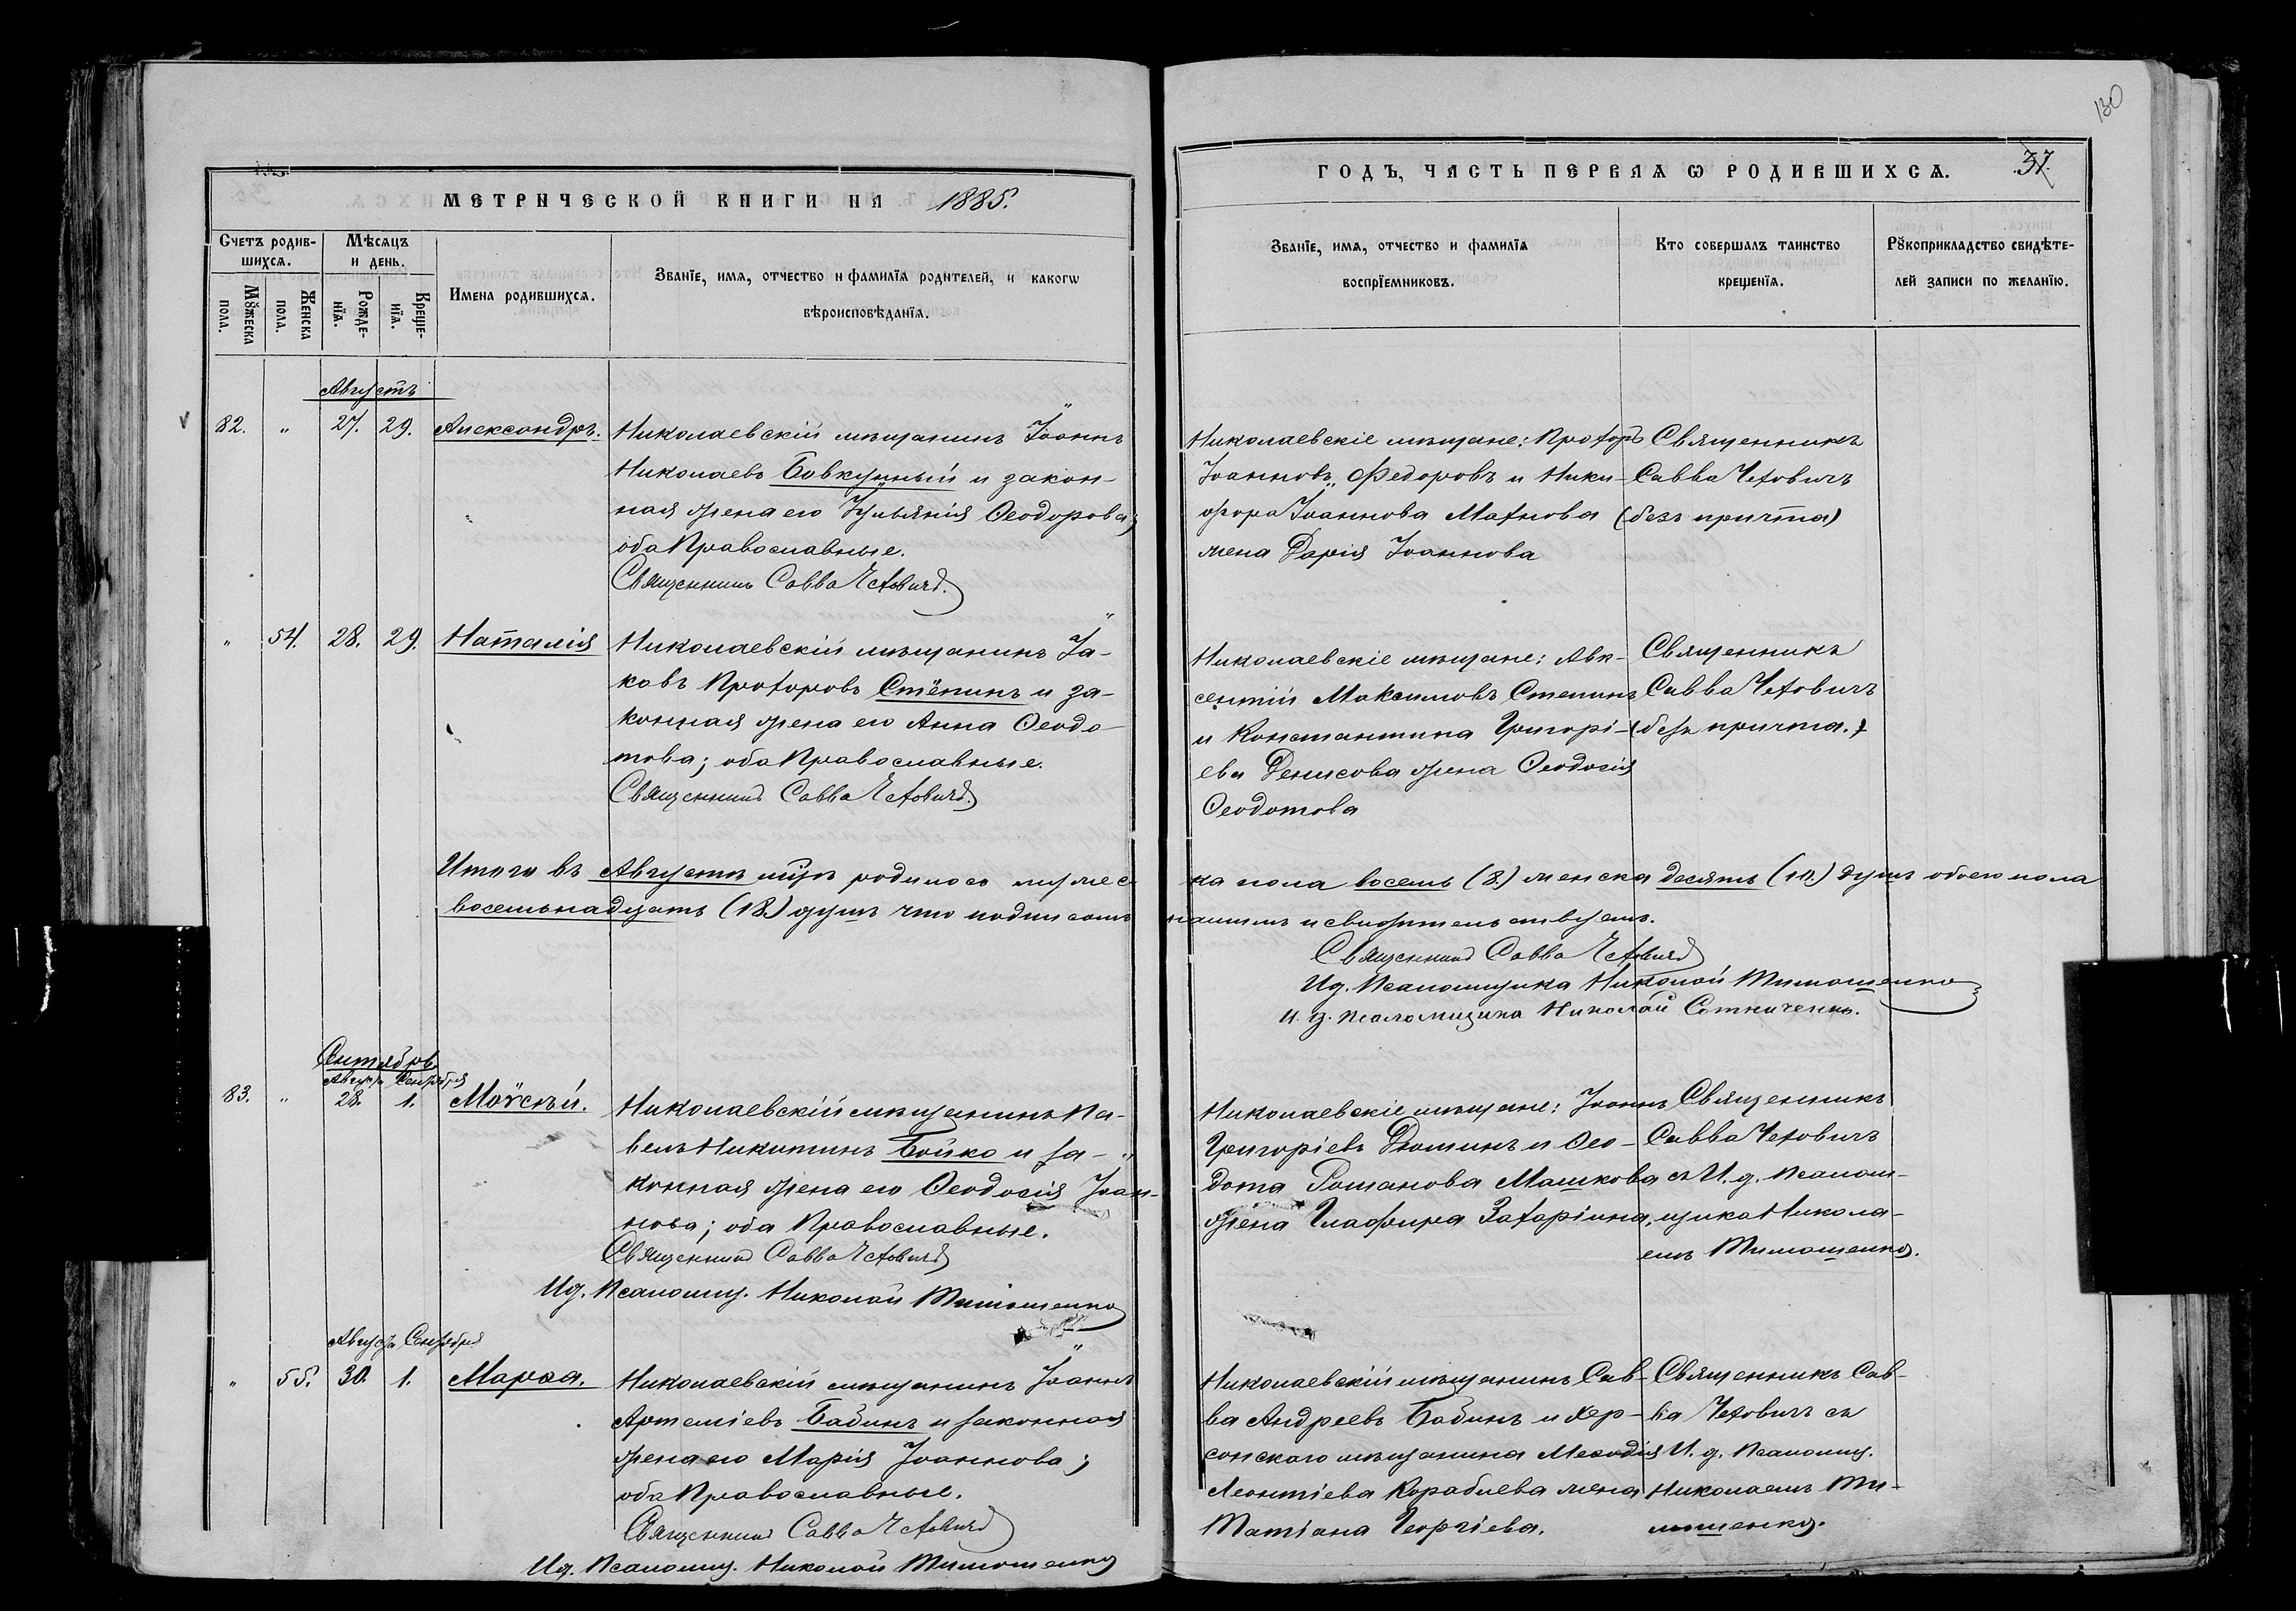 130
МЕТРИЧЕСКОЙ КНИГИ НА 1885.
ГОДЪ, ЧАСТЬ ПЕРВАЯ Ѡ РОДИВШИХСѦ. 37.
Счетъ родив-
шихсѧ.
Мѣсѧцъ
и день.
Мꙋжеска
пола.
Женска
пола.
Рожде-
нїѧ.
Креще-
нїѧ.
Имена родившихсѧ.
Званїе, имѧ, отчество и фамилїѧ родителей, и какогѡ
вѣроисповѣданїѧ.
Званїе, имѧ, отчество и фамилїѧ
воспрїемниковъ.
Кто совершалъ таинство
крещенїѧ.
Рꙋкоприкладство свидѣте-
лей записи по желанїю.
Августъ
82. " 27. 29. Александръ.
Николаевскій мѣщанинъ Іоаннъ
Николаевъ Бовкунный и закон-
ная жена его Іульянія Ѳеодорова;
оба Православные.
Священникъ Савва Чеховичъ.
Николаевскіе мѣщане: Прохоръ
Іоанновъ Федоровъ и Ники-
фора Іоаннова Махнова
жена Дарія Іоаннова
Священникъ
Савва Чеховичъ
(безъ причта)
" 54. 28. 29. Наталія
Николаевскій мѣщанинъ Іа-
ковъ Прохоровъ Стёпинъ и за-
конная жена его Анна Ѳеодо-
това; оба Православные.
Священникъ Савва Чеховичъ.
Николаевскіе мѣщане: Авк-
сентій Максимовъ Степинъ
и Константина Григорі-
ева Денисова жена Ѳеодосія
Ѳеодотова
Священникъ
Савва Чеховичъ
(безъ причта.)
Итого въ Августѣ мцѣ родилось мужес-
ка пола восемь (8.) женска десять (10.) душъ обоего пола
восемьнадцать (18.) душъ что подписомъ
нашимъ и свидѣтельствуемъ.
Священникъ Савва Чеховичъ
И д. Псаломщика Николай Тимошенко
И. д. псаломщика Николай Сотниченко.
Сентябрь
Августа Сентября
83. " 28. 1. Моѵсей.
Николаевскій мѣщанинъ Па-
велъ Никитинъ Бойко и за-
конная жена его Ѳеодосія Іоан-
нова; оба Православные.
Священникъ Савва Чеховичъ
И д. Псаломщ. Николай Тимошенко
Николаевскіе мѣщане: Іоаннъ
Григоріевъ Дюминъ и Ѳео-
дота Романова Машкова
жена Глафира Захаріина,
Священникъ
Савва Чеховичъ
съ И. д. Псалом-
щика Никола-
емъ Тимошенко.
Августа Сентября
" 55. 30. 1. Марѳа.
Николаевскій мѣщанинъ Іоаннъ
Артеміевъ Бабинъ и законная
жена его Марія Іоаннова;
оба Православные.
Священникъ Савва Чеховичъ
И д. Псаломщ. Николай Тимошенко
Николаевскій мѣщанинъ Сав-
ва Андреевъ Бабинъ и Хер-
сонскаго мѣщанина Меѳодія
Леонтіева Кораблева жена
Татіана Георгіева.
Священникъ Сав-
ва Чеховичъ съ
И. д. Псаломщ.
Николаемъ Ти-
мошенко.